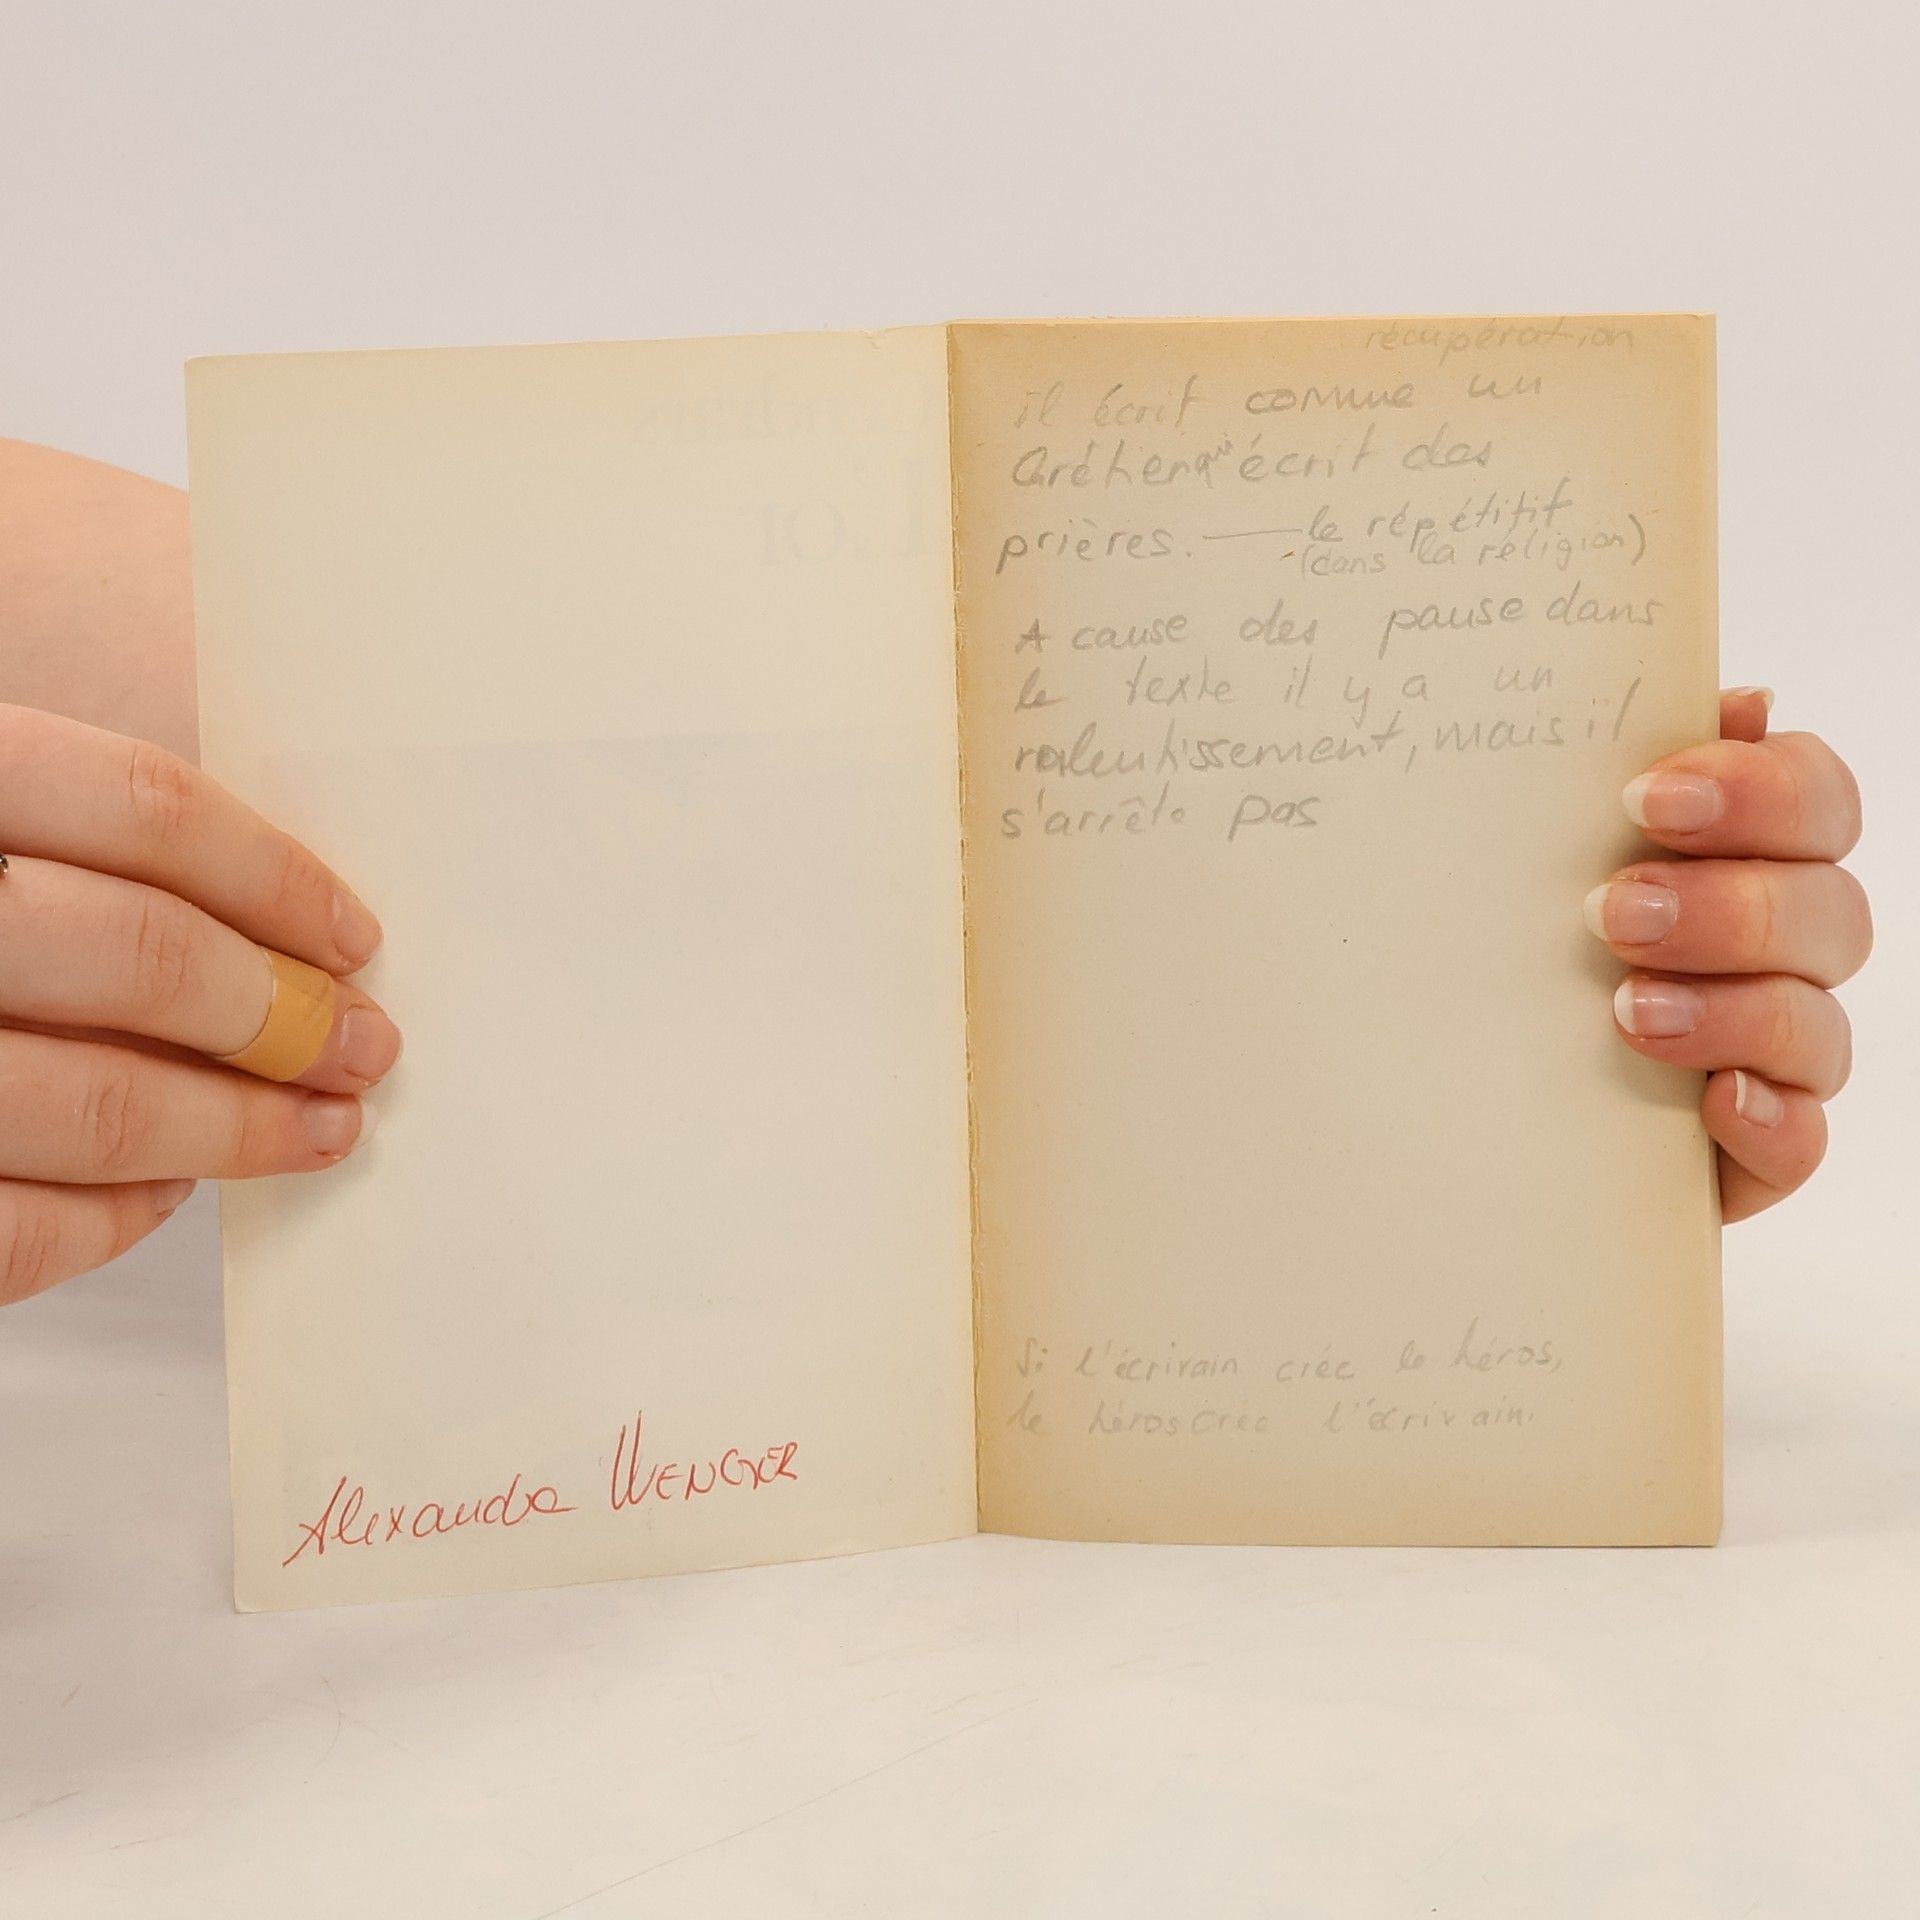 Alexandra WENGER
récupération
il écrit comme un
Chrétien qui écrit des
prières. — le répétitif
(dans la réligion)
A cause des pause dans
le texte il y a un
ralentissement, mais il
s'arrête pas
Si l'écrivain crée le héros,
le héros crée l'écrivain.